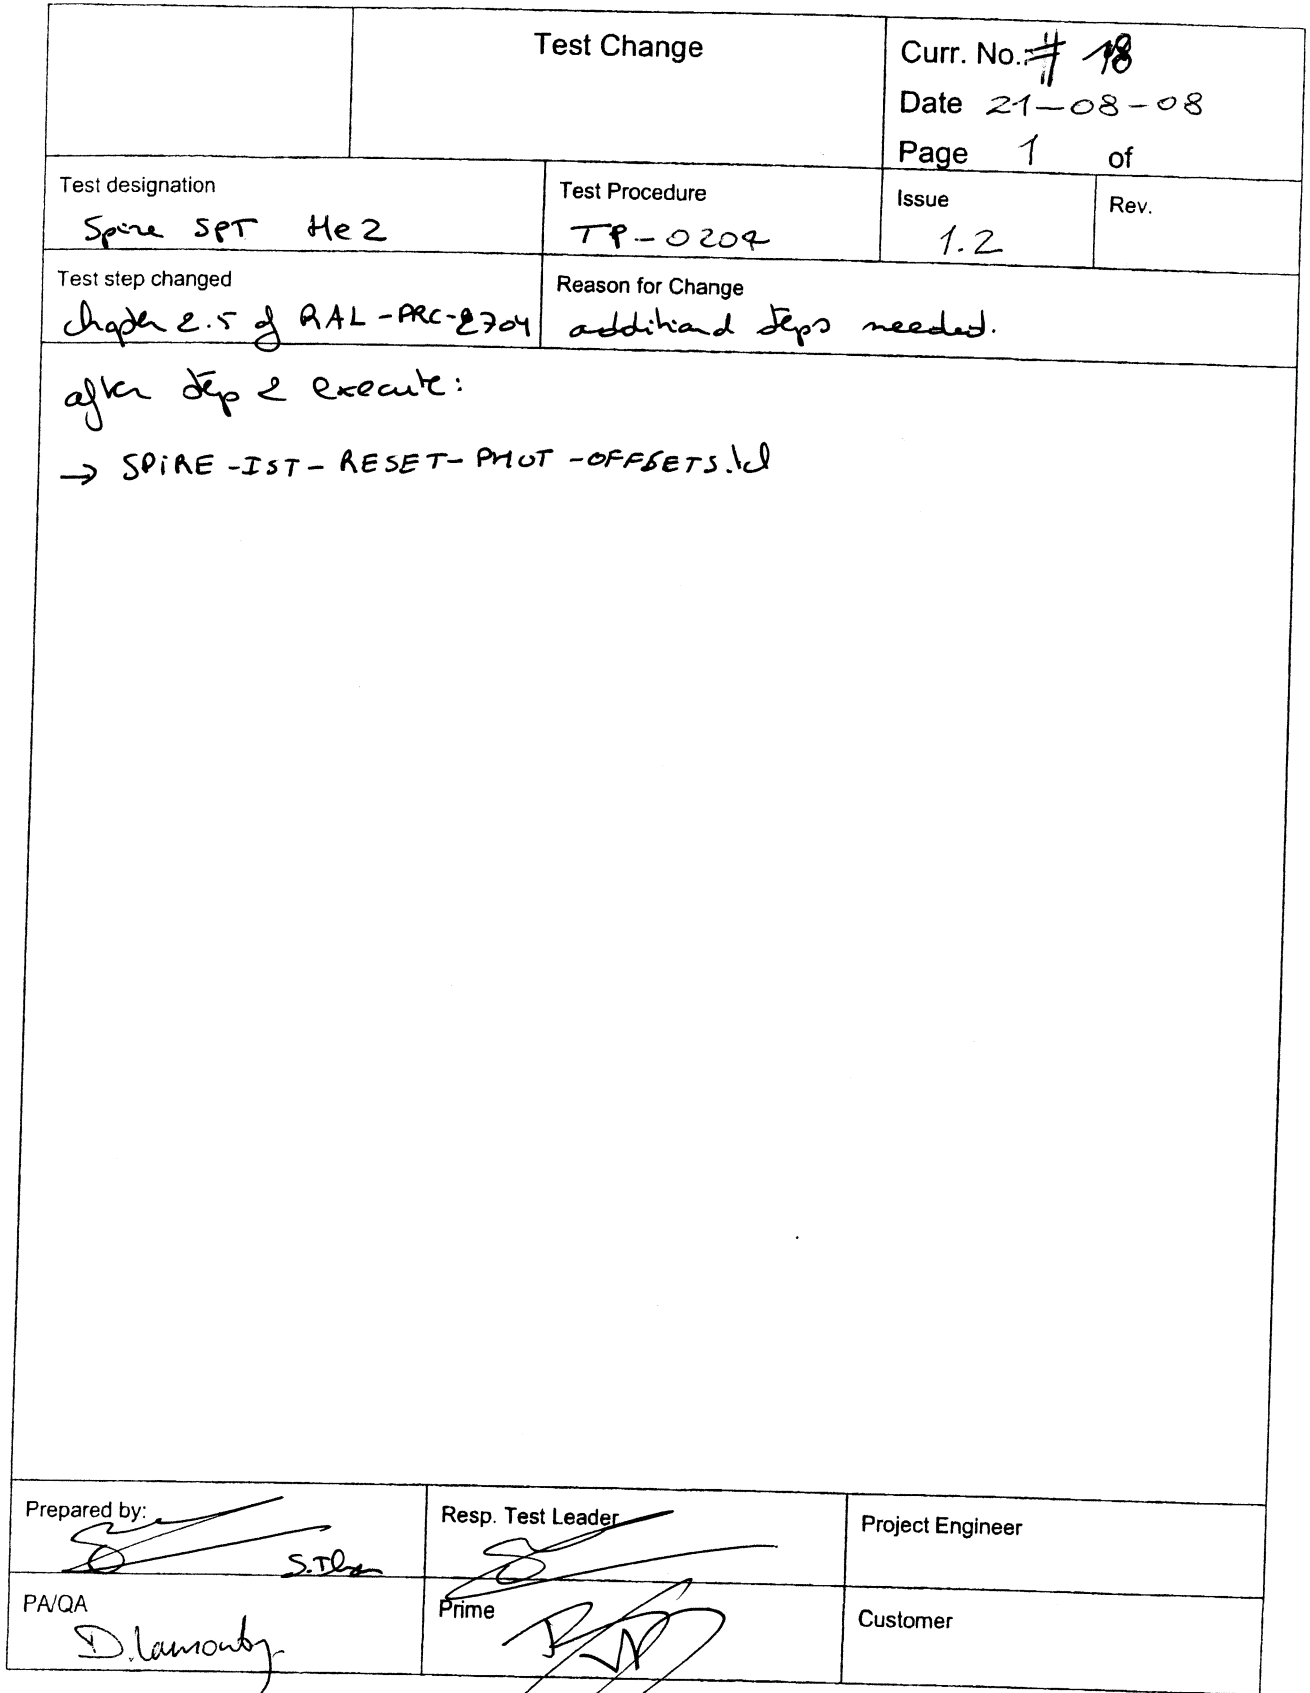 Test Change
Curr. No.: # 18
Date 21-08-08
Page 1 of
Test designation
Spire SPT He2
Test Procedure
TP-0204
Issue
1.2
Rev.
Test step changed
chapter 2.5 of RAL-PRC-2704
Reason for Change
additional steps needed.
after step 2 execute:
→ SPIRE-IST-RESET-PHOT-OFFSETS.tcl
Prepared by:
Resp. Test Leader
Project Engineer
PA/QA
Prime
Customer